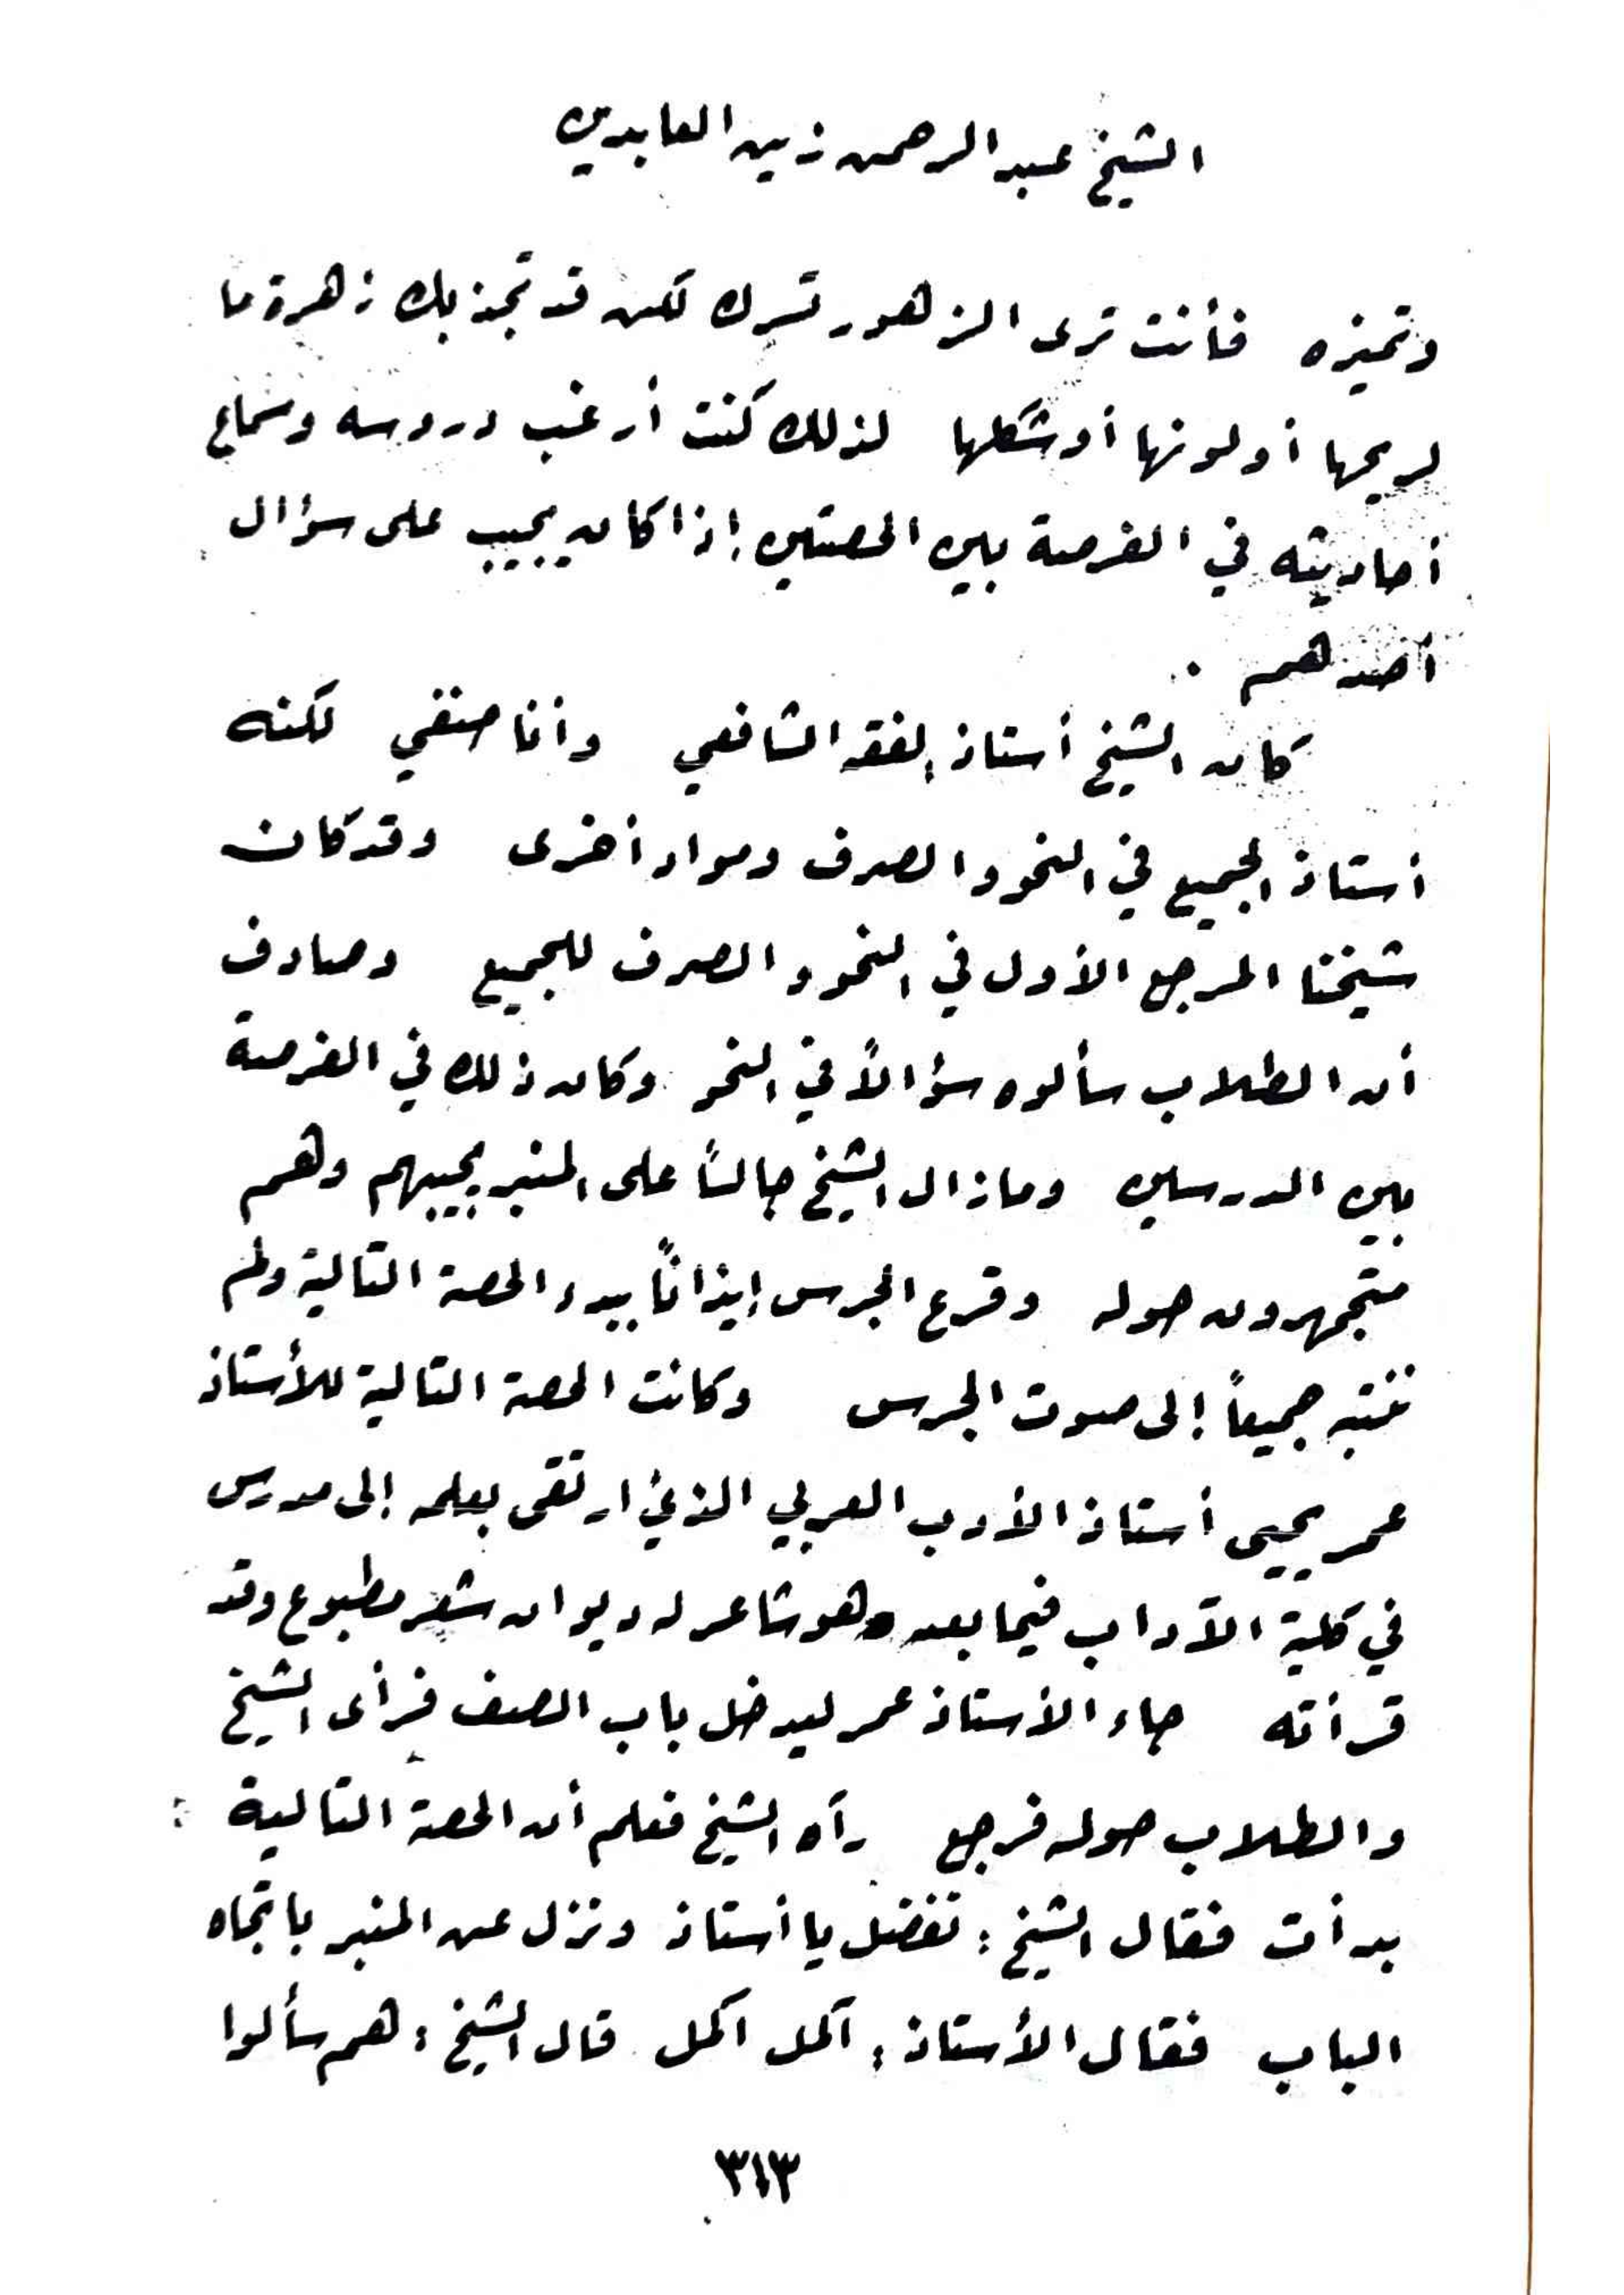 الشيخ عبد الرحمن زين العابدين
وتميزه فأنت ترى الزهور تسرك لكن قد تجذبك زهرة ما
لريحها أو لونها أو شكلها لذلك كنت أرغب دروسه وسماع
أحاديثه في الفرصة بين الحصتين إذا كان يجيب على سؤال
أحدهم .
كان الشيخ أستاذ الفقه الشافعي وأنا حنفي لكنه
أستاذ الجميع في النحو والصرف ومواد أخرى وقد كان
شيخنا المرجع الأول في النحو والصرف للجميع وصادف
أن الطلاب سألوه سؤالاً في النحو وكان ذلك في الفرصة
بين الدرسين ومازال الشيخ جالساً على المنبر يجيبهم وهم
متجمهرون حوله وقرع الجرس إيذاناً ببدء الحصة التالية ولم
ننتبه جميعاً إلى صوت الجرس وكانت الحصة التالية للأستاذ
عمر يحيى أستاذ الأدب العربي الذي ارتقى بعلمه إلى مدرس
في كلية الآداب فيما بعد وهو شاعر له ديوان شعر مطبوع وقد
قرأته جاء الأستاذ عمر ليدخل باب الصف فرأى الشيخ
والطلاب حوله فرجع رآه الشيخ فعلم أن الحصة التالية
بدأت فقال الشيخ : تفضل يا أستاذ ونزل عن المنبر باتجاه
الباب فقال الأستاذ : أكمل أكمل قال الشيخ : هم سألوا
٣١٣